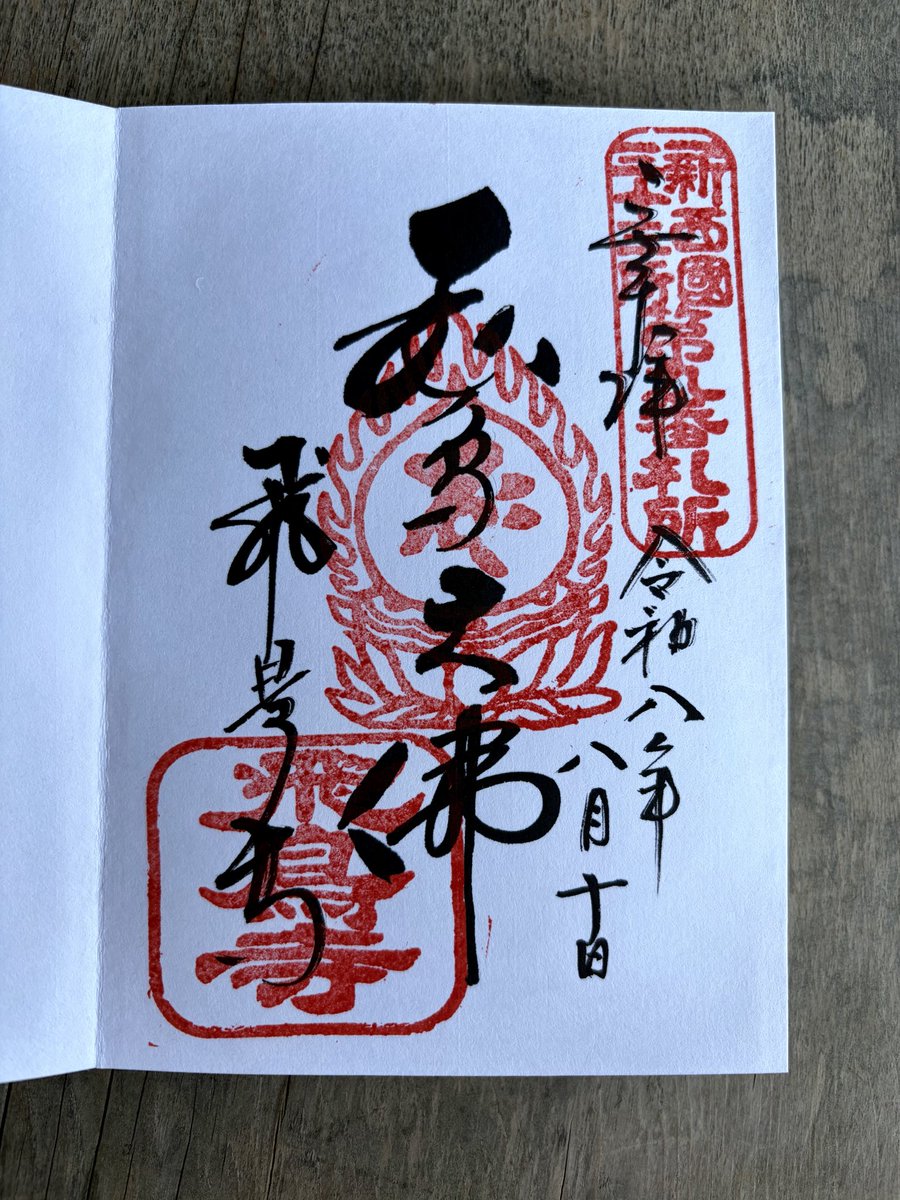 奉拝
新西國
第九番札所
令和八年
八月十日
飛鳥大佛
飛鳥寺
飛鳥寺